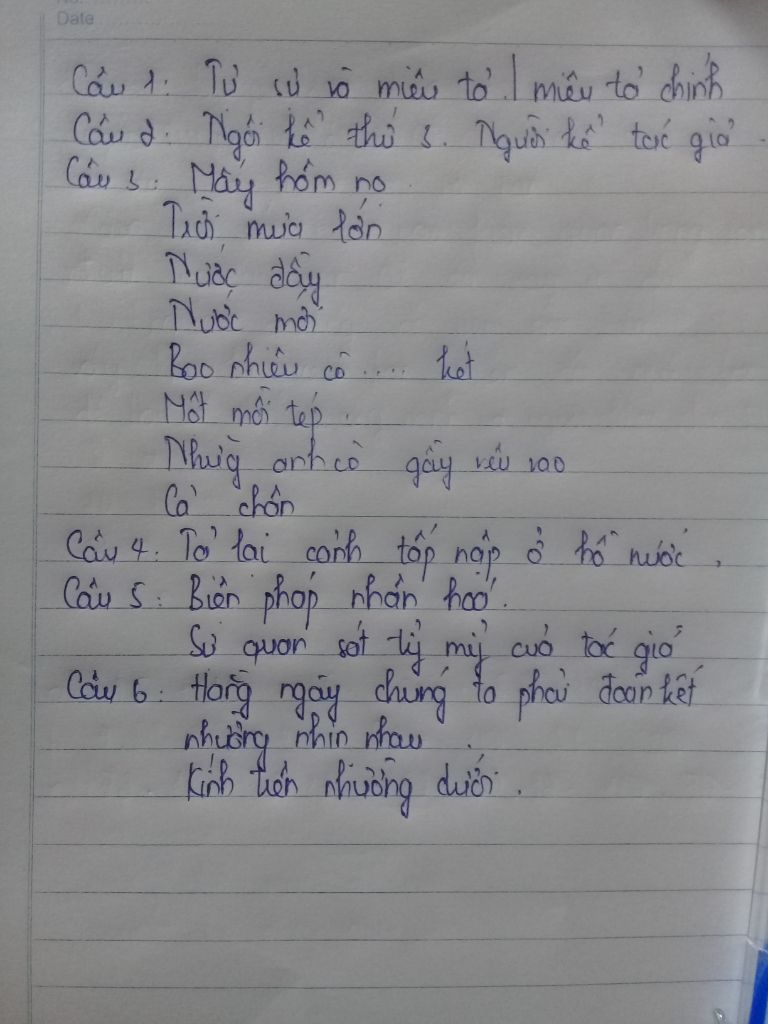 No.
Date
Câu 1: Tự sự và miêu tả | miêu tả chính
Câu 2: Ngôi kể thứ 3. Người kể tác giả.
Câu 3: Mấy hôm nọ.
Trời mưa lớn
Nước đầy
Nước mới
Bao nhiêu cò .... két
Một mồi tép.
Những anh cò gầy vêu vao
Cả chân
Câu 4: Tả lại cảnh tấp nập ở hồ nước.
Câu 5: Biện pháp nhân hoá.
Sự quan sát tỷ mỷ của tác giả
Câu 6: Hàng ngày chúng ta phải đoàn kết
nhường nhịn nhau.
Kính trên nhường dưới.